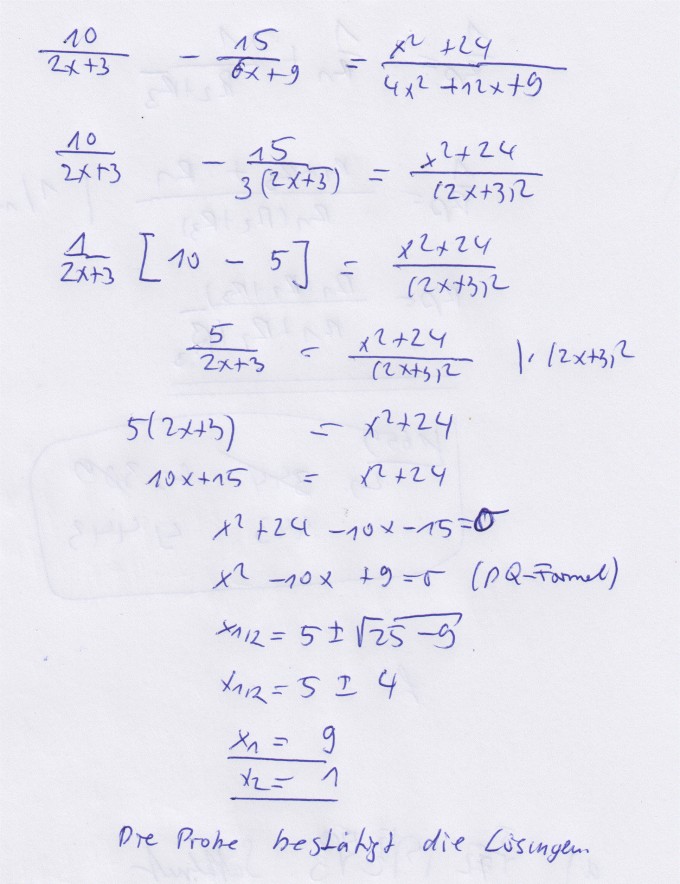 10/(2x+3) - 15/(6x+9) = (x² +24)/(4x² +12x+9)
10/(2x+3) - 15/(3(2x+3)) = (x²+24)/(2x+3)²
1/(2x+3) [10 - 5] = (x²+24)/(2x+3)²
5/(2x+3) = (x²+24)/(2x+3)² |· (2x+3)²
5(2x+3) = x²+24
10x+15 = x²+24
x²+24 -10x-15=0
x² -10x +9=0 (PQ-Formel)
x1/2 = 5 ± √(25 -9)
x1/2 = 5 ± 4
x1 = 9
x2 = 1
Die Probe bestätigt die Lösungen.